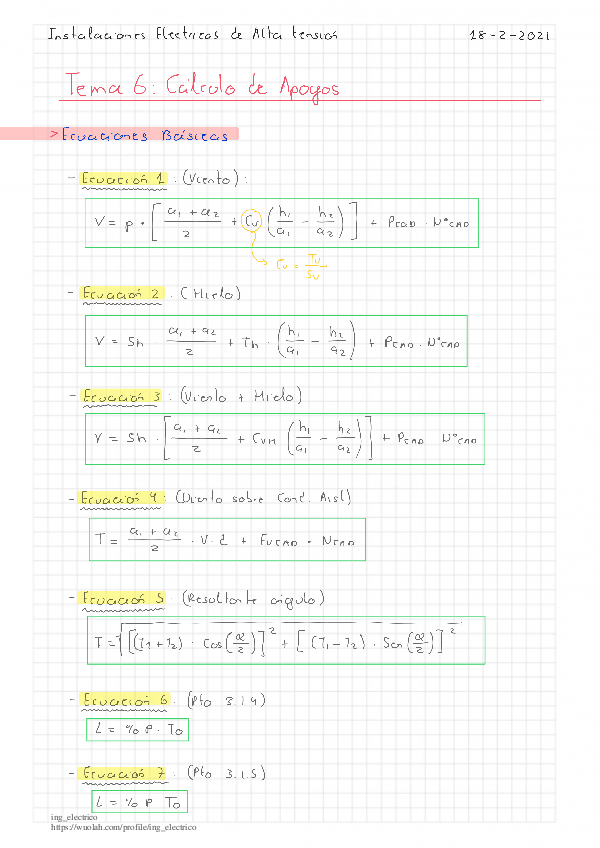 Instalaciones Electricas de Alta tension 18-2-2021
Tema 6: Cálculo de Apoyos
> Ecuaciones Básicas
- Ecuación 1 : (Viento) :
V = p · [ (a1 + a2)/2 + Cv (h1/a1 - h2/a2) ] + PCAD · NºCAD
→ Cv = Tv/Sv
- Ecuación 2 : (Hielo)
V = Sh · (a1 + a2)/2 + Th · (h1/a1 - h2/a2) + PCAD · NºCAD
- Ecuación 3 : (Viento + Hielo)
V = Sh · [ (a1 + a2)/2 + CVH (h1/a1 - h2/a2) ] + PCAD · NºCAD
- Ecuación 4 : (Viento sobre Cond. Aisl)
T = (a1 + a2)/2 · V · d + FVCAD · NCAD
- Ecuación 5 : (Resultante angulo)
T = √( [(T1 + T2) · Cos(α/2)]² + [(T1 - T2) · Sen(α/2)]² )
- Ecuación 6 : (Pto 3.1.4)
L = % P · To
- Ecuación 7 : (Pto 3.1.5)
L = % P To
ing_electrico
https://wuolah.com/profile/ing_electrico